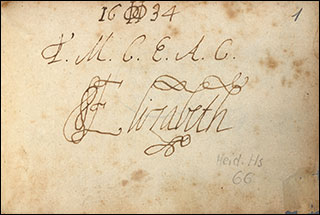 1634
1
P. M. C. E. A. C.
Elizabeth
Heid. Hs
66